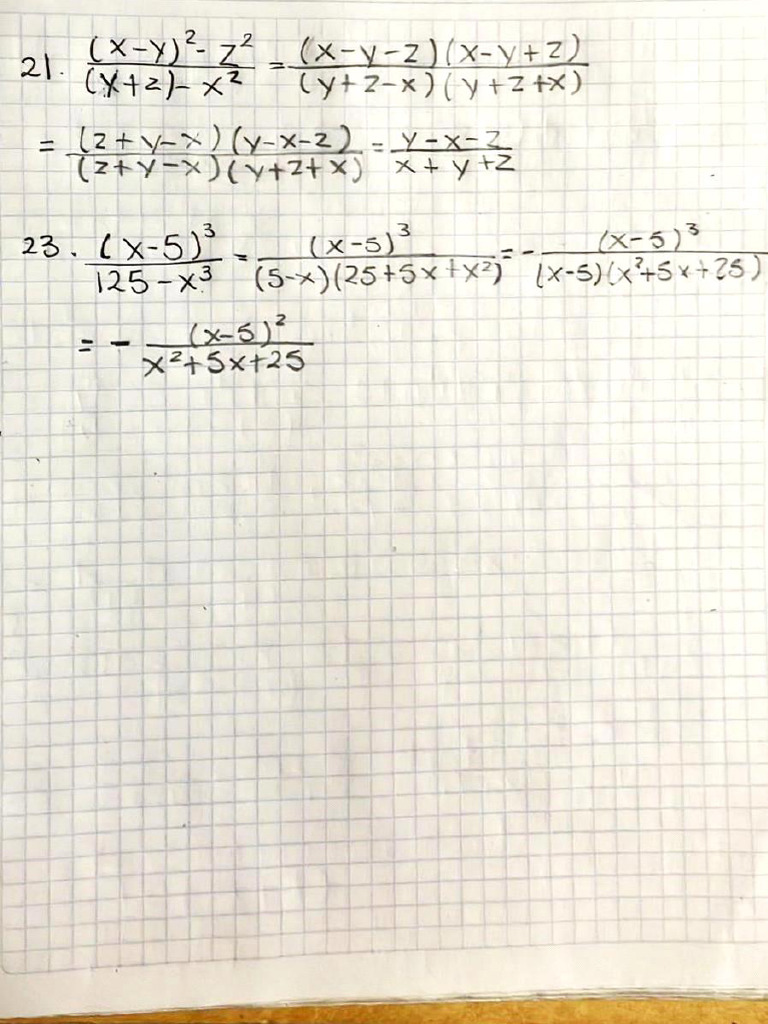 21. (x-y)²-z²/(y+z)-x² = (x-y-z)(x-y+z)/(y+z-x)(y+z+x)
= (z+y-x)(y-x-z)/(z+y-x)(y+z+x) = y-x-z/x+y+z
23. (x-5)³/125-x³ = (x-5)³/(5-x)(25+5x+x²) = - (x-5)³/(x-5)(x²+5x+25)
= - (x-5)²/x²+5x+25